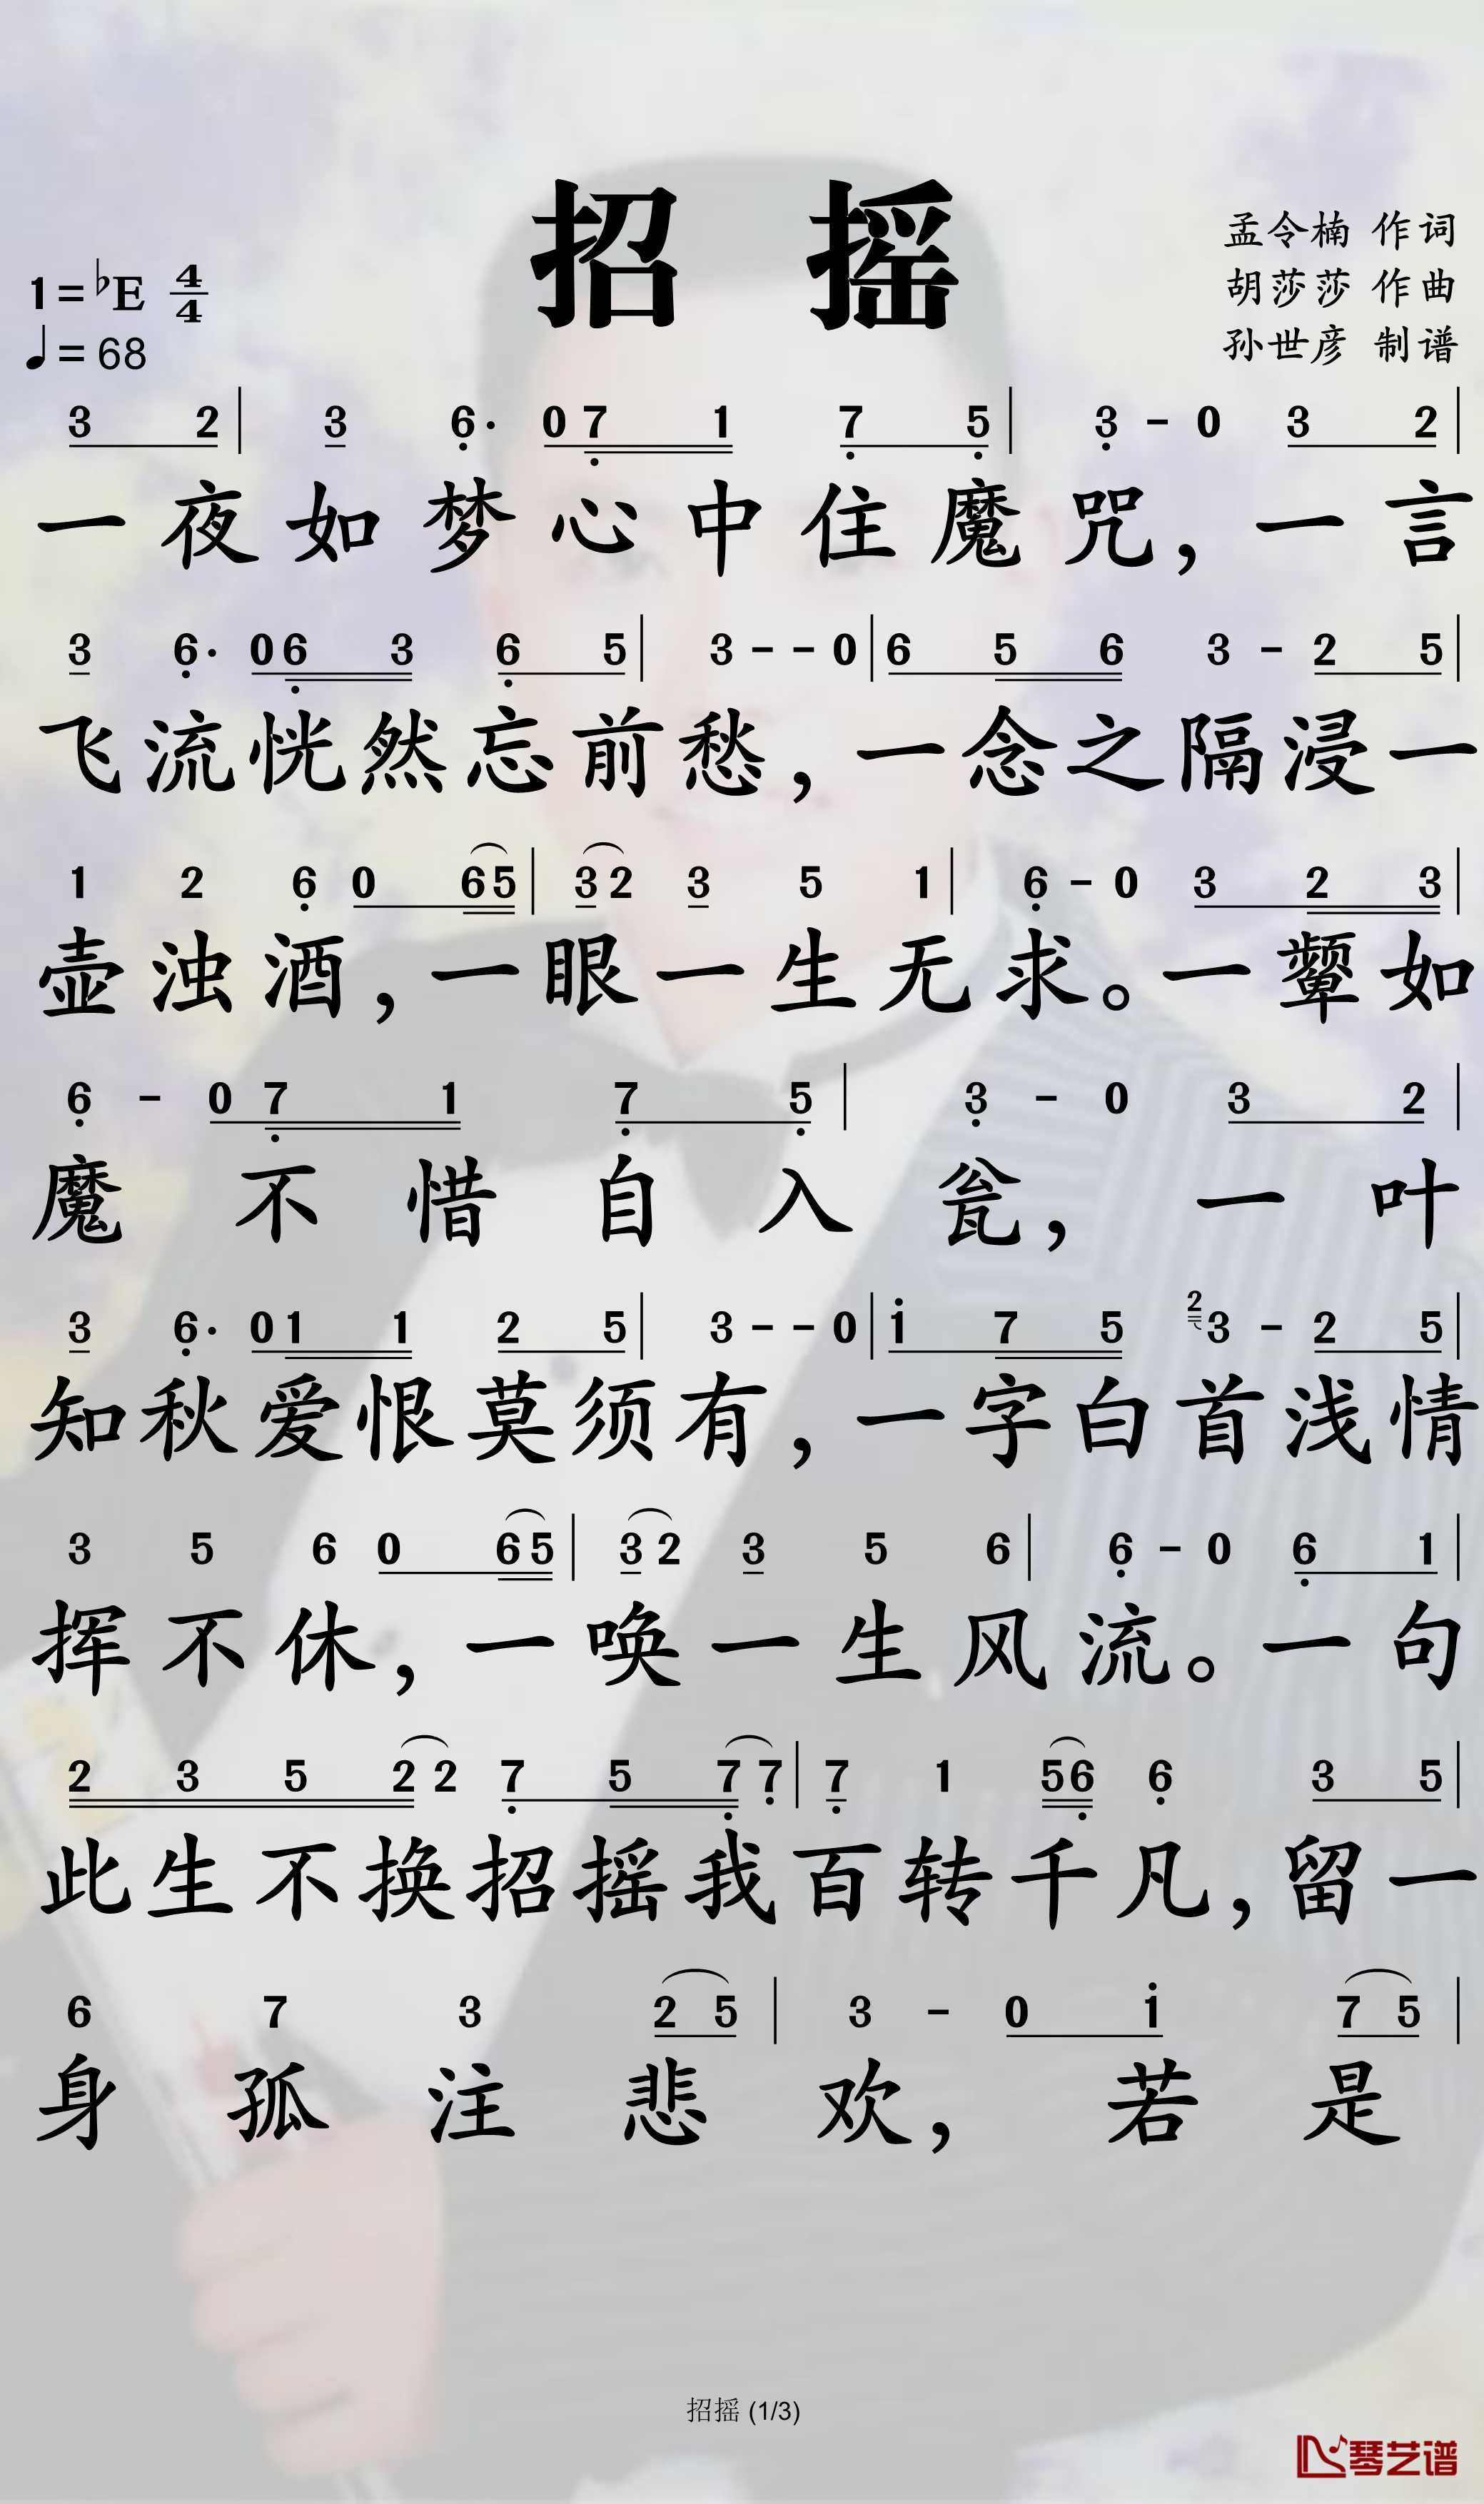 招 摇
孟令楠 作词
胡莎莎 作曲
孙世彦 制谱
1=♭E 4/4
♩=68
3 2 | 3 6· 0 7 1 7 5 | 3 - 0 3 2 |
一夜如梦心中住魔咒，一言
3 6· 0 6 3 6 5 | 3 - - 0 | 6 5 6 3 - 2 5 |
飞流恍然忘前愁，一念之隔浸一
1 2 6 0 6 5 | 3 2 3 5 1 | 6 - 0 3 2 3 |
壶浊酒，一眼一生无求。一颦如
6 - 0 7 1 7 5 | 3 - 0 3 2 |
魔不惜自入瓮，一叶
3 6· 0 1 1 2 5 | 3 - - 0 | 1 7 5 2 3 - 2 5 |
知秋爱恨莫须有，一字白首浅情
3 5 6 0 6 5 | 3 2 3 5 6 | 6 - 0 6 1 |
挥不休，一唤一生风流。一句
2 3 5 2 2 7 5 7 7 | 7 1 5 6 6 3 5 |
此生不换招摇我百转千凡，留一
6 7 3 2 5 | 3 - 0 1 7 5 |
身孤注悲欢，若是
招摇 (1/3)
琴艺谱